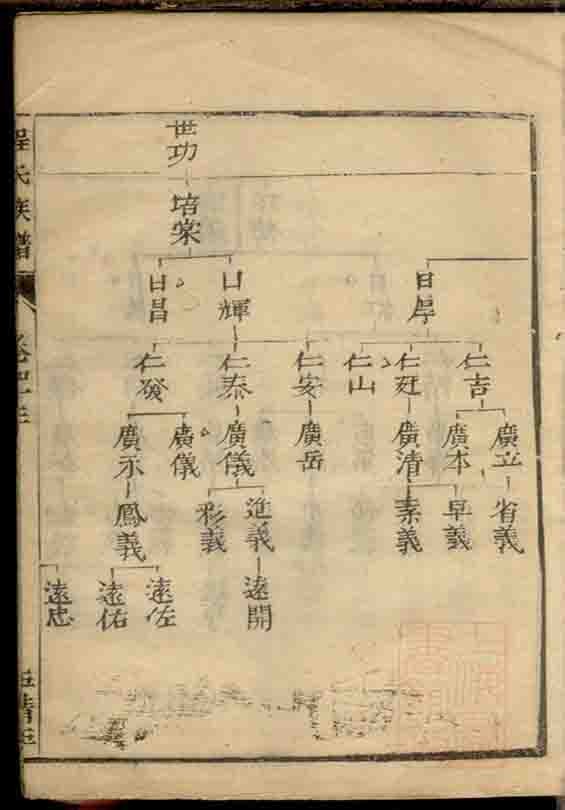 世功
培棠
日昌
日輝
日厚
仁發
仁泰
仁安
仁山
仁廷
仁吉
廣示
廣儀
廣儀
廣岳
廣清
廣本
廣立
鳳義
彩義
進義
素義
早義
省義
遠忠
遠佑
遠佐
遠開
程氏族譜